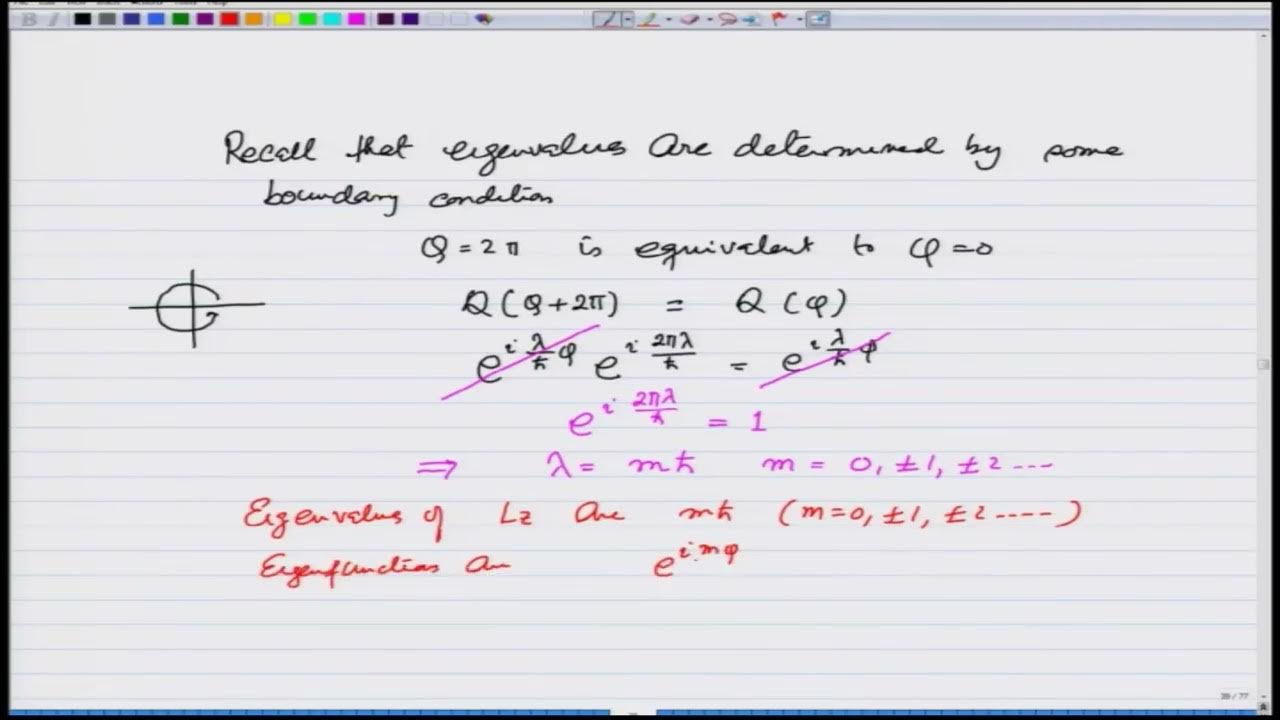 Recall that eigenvalues are determined by some
boundary condition
φ = 2π is equivalent to φ = 0
Q(φ + 2π) = Q(φ)
e^{i λ/ħ φ} e^{i 2πλ/ħ} = e^{i λ/ħ φ}
e^{i 2πλ/ħ} = 1
⇒ λ = mħ m = 0, ±1, ±2 ---
Eigenvalues of Lz are mħ (m=0, ±1, ±2 ----)
Eigenfunctions are e^{imφ}
39 / 77